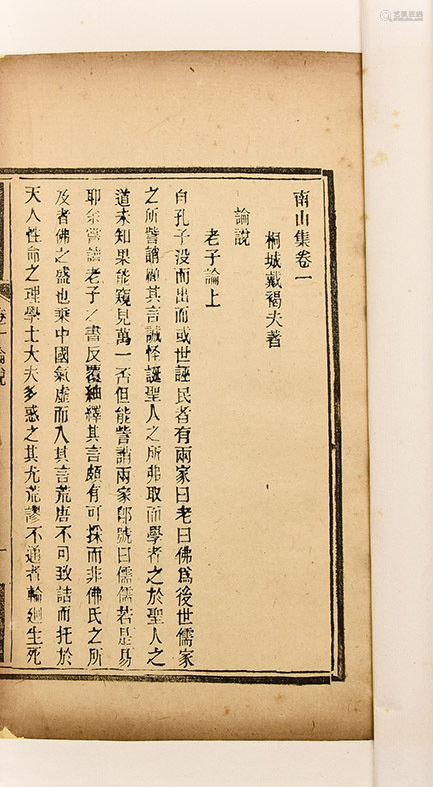 南山集卷一
桐城戴褐夫著
論說
老子論上
自孔子没而出而或世誣民者有兩家曰老曰佛爲後世儒家
之所訾誚顧其言誠怪誕聖人之所弗取而學者之於聖人之
道未知果能窺見萬一否但能訾誚兩家卽號曰儒儒若是易
耶余嘗論老子之書反覆紬繹其言頗有可採而非佛氏之所
及者佛之盛也乘中國氣虛而入其言荒唐不可致詰而托於
天人性命之理學士大夫多惑之其尤荒謬不通者輪廻生死
卷一 論說
一